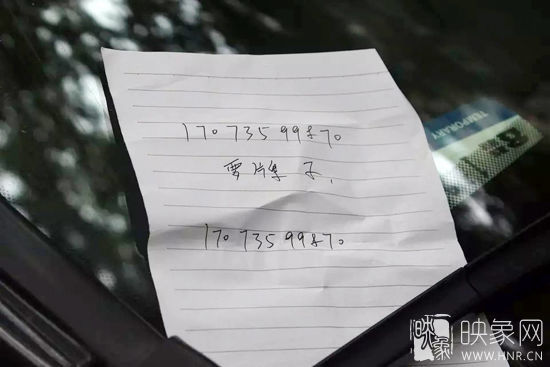 17073599870
要片集子,
17073599870
TEMPORARY
映象
映象网
WWW.HNR.CN